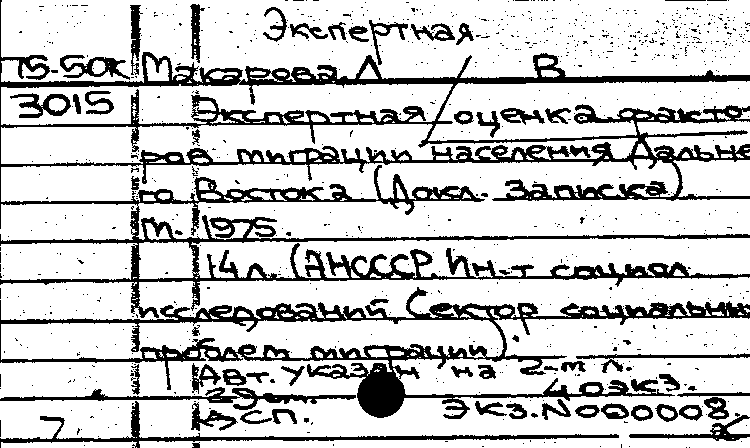 Экспертная
75-50К Макарова Л В
3015 Экспертная оценка факто-
ров миграции населения Дальне-
го Востока (Докл. Записка).
М. 1975.
14 л. (АН СССР. Ин-т социал.
исследований. Сектор социальных
проблем миграции).
Авт. указан на 2-м л.
29 см. 40 экз.
Экз. N 000008.
7